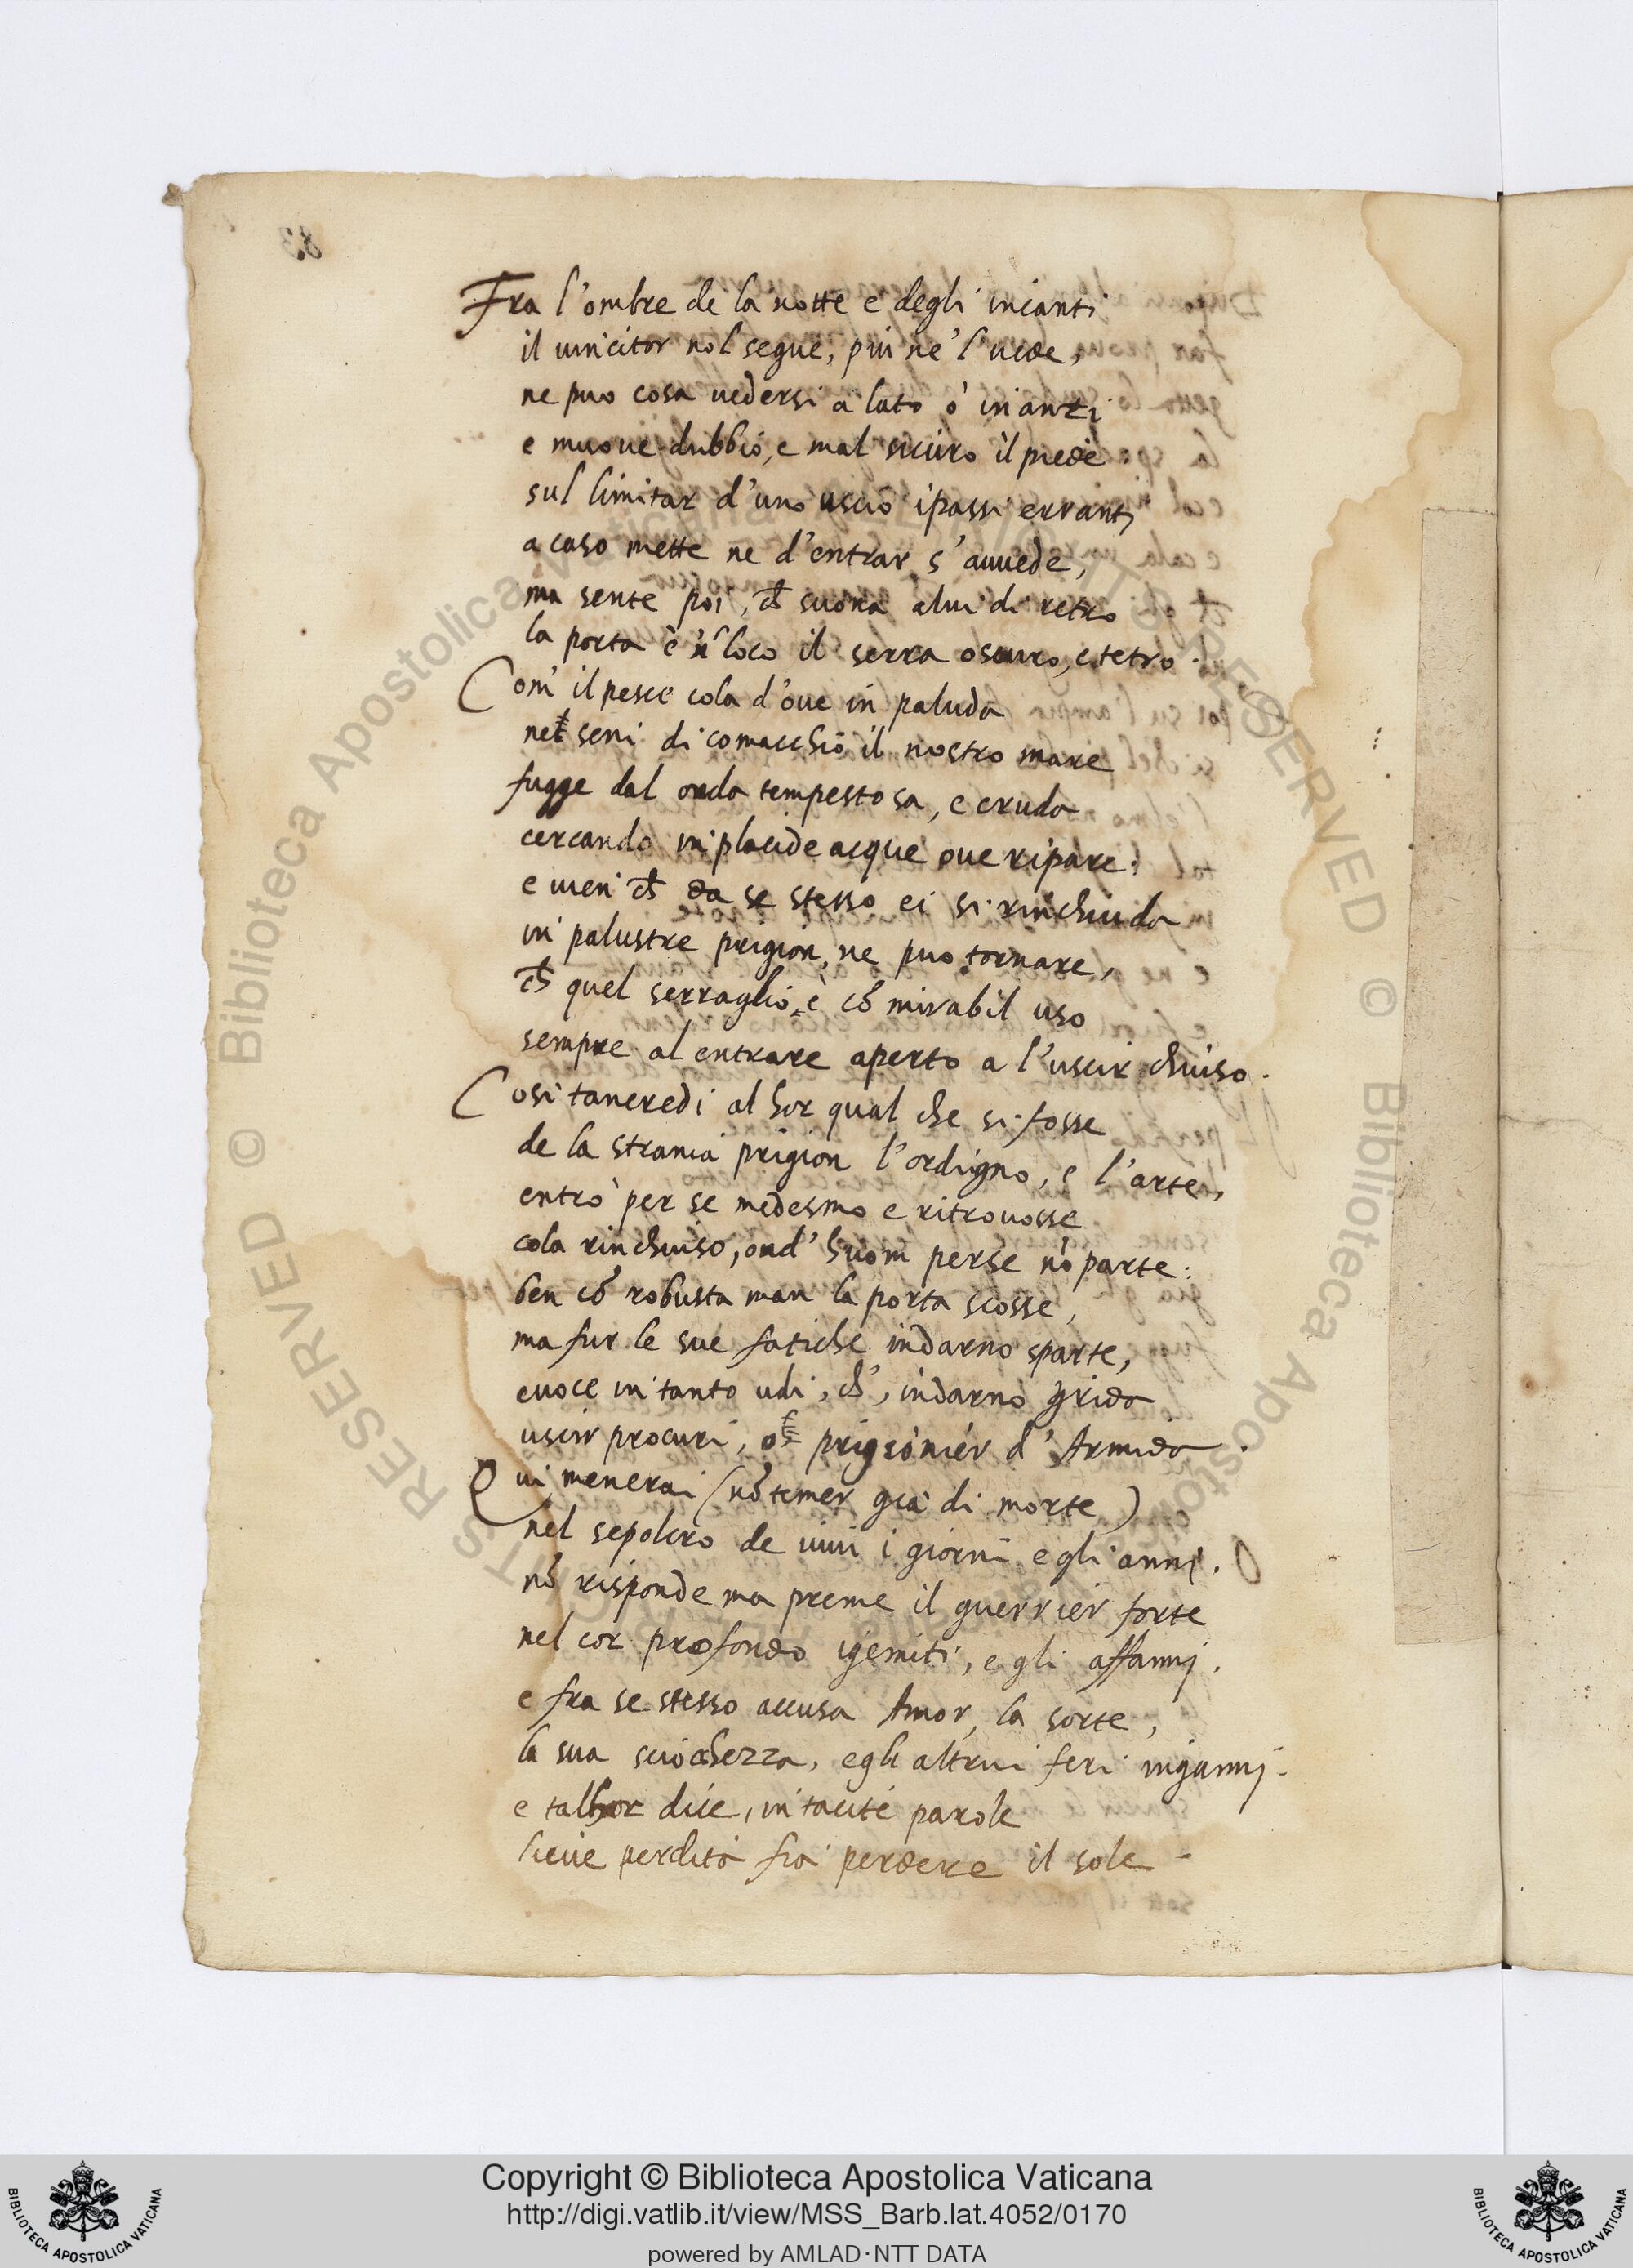 83
Fra l'ombre de la notte e degli incanti
il uincitor nol segue, piu ne'l uede,
ne puo cosa uedersi a lato ò inanzi
e muoue dubbio, e mal sicuro il piede
sul limitar d'uno uscio i passi erranti
a caso mette ne d'entrar s'auuede,
ma sente poi, ch̃ suona a lui di retro
la porta è 'n loco il serra oscuro, e tetro.
Com' il pesce cola d'oue in paluda
ne seni di comacchio il nostro mare
fugge dal onda tempestosa, e cruda
cercando in placide acque oue ripare.
e uien ch̃ da se stesso ei si rinchiuda
in palustre prigion, ne puo tornare,
ch̃ quel serraglio, è cõ mirabil uso
sempre al entrare aperto a l'uscir chiuso.
Cosi tancredi al hor qual che si fosse
de la strania prigion l'ordigno, e l'arte,
entrò per se medesmo e ritrouosse
cola rinchiuso, ond' huom per se nõ parte:
ben cõ robusta man la porta scosse,
ma fur le sue fatiche indarno sparte,
e uoce in tanto udi, ch', indarno grida
uscir procuri, o prigionier d'Armida.
Qui menerai (nõ temer gia di morte)
nel sepolcro de uiui i giorni e gli anni.
nõ risponde ma preme il guerrier forte
nel cor profondo i gemiti, e gli affanni.
e fra se stesso accusa Amor, la sorte,
la sua sciochezza, e gli altrui feri inganni.
e talhor dice, in tacite parole
lieue perdita fia perdere il sole.
RESERVED © Biblioteca Apostolica Vaticana
Copyright © Biblioteca Apostolica Vaticana
http://digi.vatlib.it/view/MSS_Barb.lat.4052/0170
powered by AMLAD·NTT DATA
BIBLIOTECA APOSTOLICA VATICANA
BIBLIOTECA APOSTOLICA VATICANA